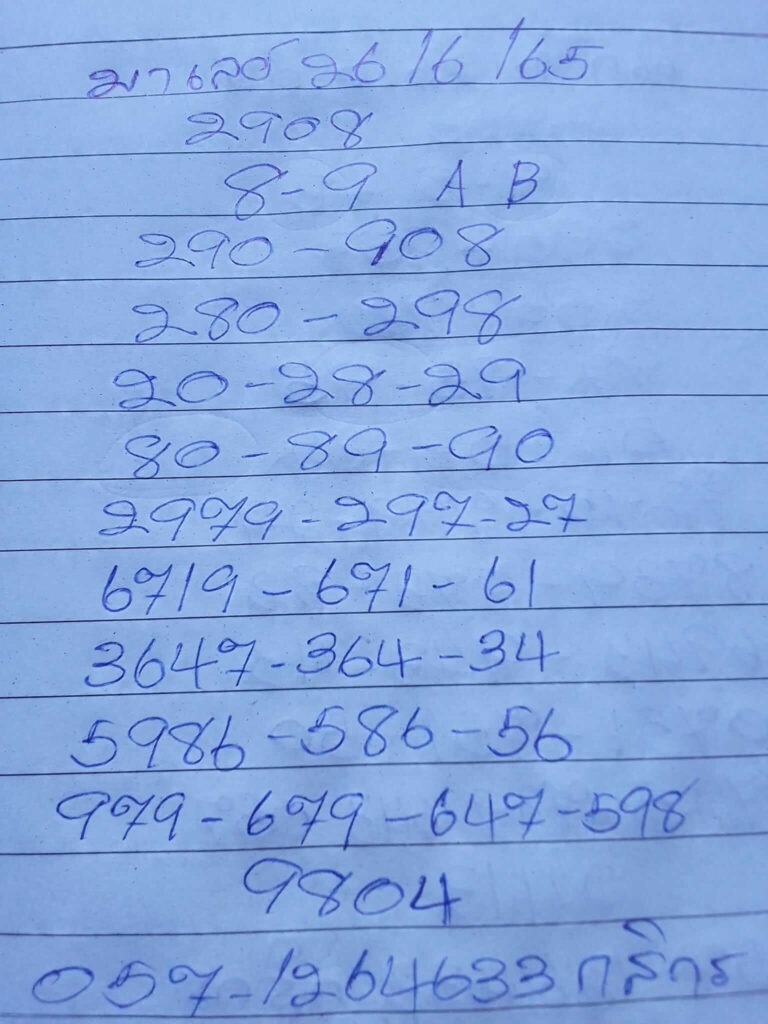 มาเลย์ 26/6/65
2908
8-9 A B
290-908
280-298
20-28-29
80-89-90
2979-297-27
6719-671-61
3647-364-34
5986-586-56
979-679-647-598
9804
057-1264633